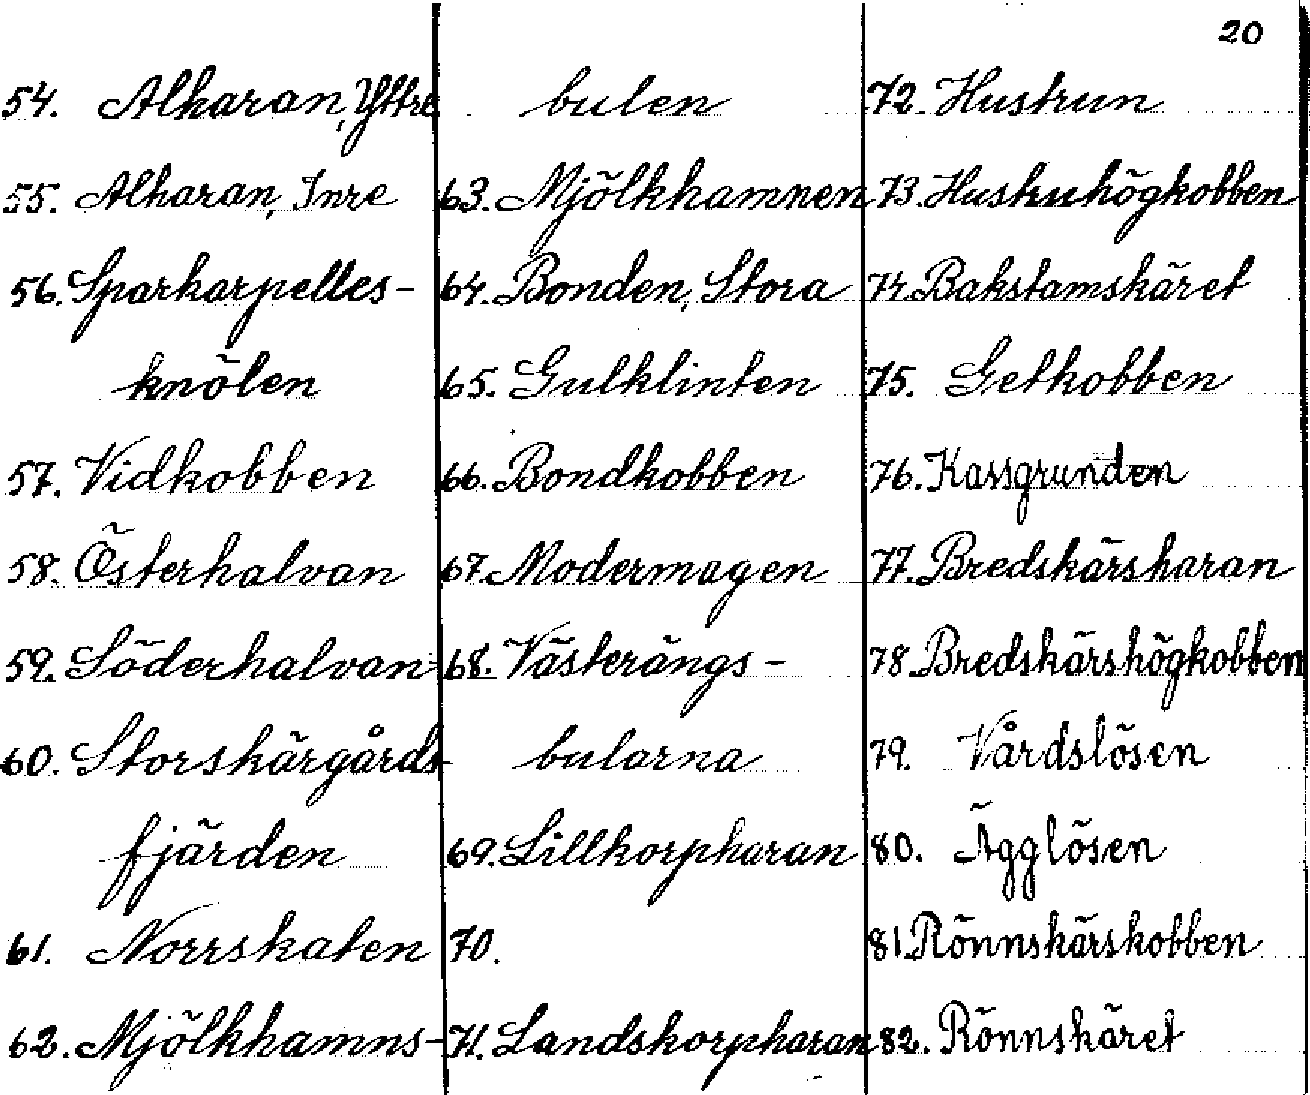 20
54. Alharan, Yttre
55. Alharan, Inre
56. Sparkarpelles-
knölen
57. Vidkobben
58. Österhalvan
59. Söderhalvan
60. Storskärgårds-
fjärden
61. Norrskaten
62. Mjölkhamns-
bulen
63. Mjölkhamnen
64. Bonden, Stora
65. Gulklinten
66. Bondkobben
67. Modermagen
68. Västerängs-
bularna
69. Lillkorpharan
70.
71. Landskorpharan
72. Hustrun
73. Hustruhögkobben
74. Bakstamskäret
75. Getkobben
76. Kassgrunden
77. Bredskärsharan
78. Bredskärshögkobben
79. Vårdslösen
80. Ägglösen
81. Rönnskärskobben
82. Rönnskäret